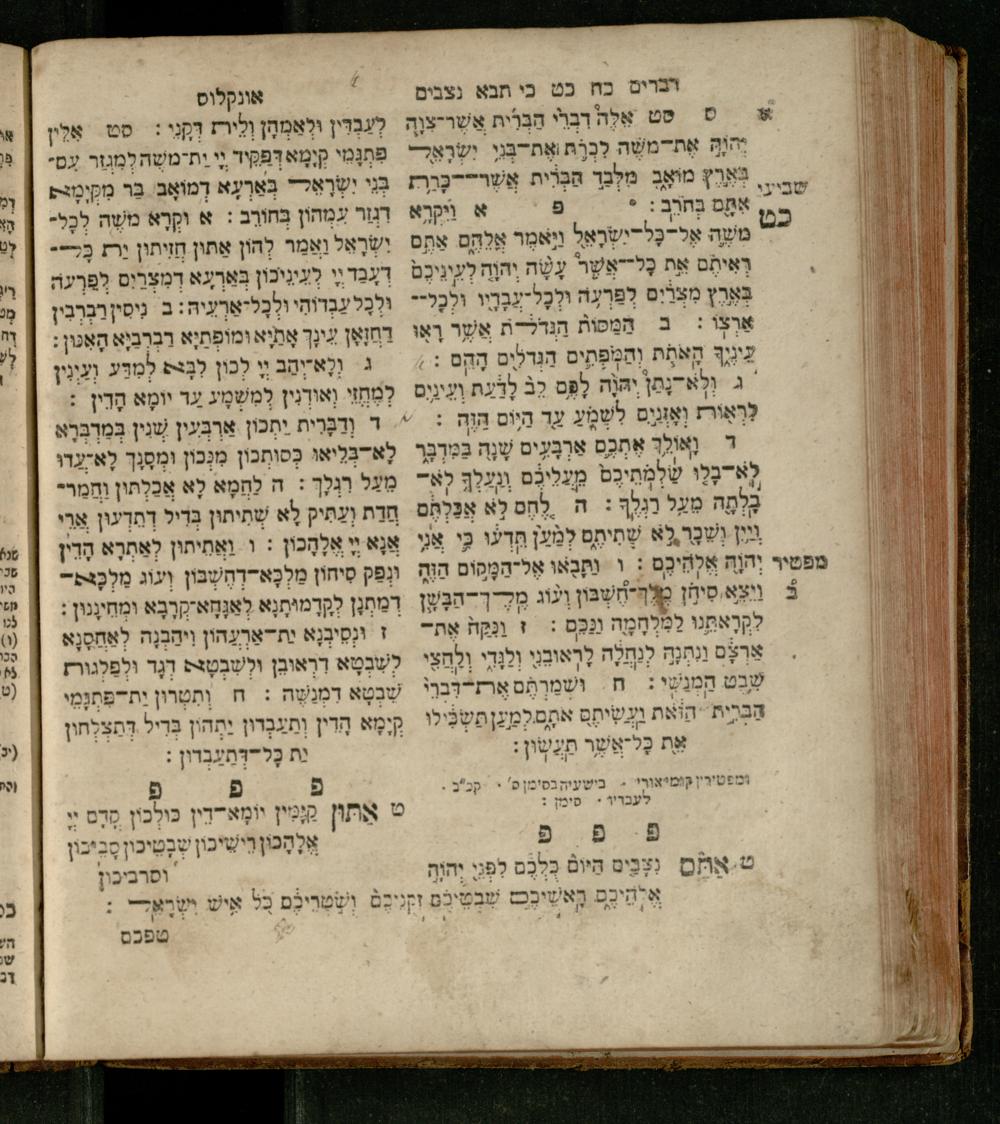 דברים כח כט כי תבא נצבים
ס סט אֵלֶּה דִבְרֵי הַבְּרִית אֲשֶׁר־צִוָּה
יְהוָה אֶת־מֹשֶׁה לִכְרֹת אֶת־בְּנֵי יִשְׂרָאֵל
בְּאֶרֶץ מוֹאָב מִלְּבַד הַבְּרִית אֲשֶׁר־כָּרַת
שביעי
אִתָּם בְּחֹרֵב : פ א וַיִּקְרָא
כט
מֹשֶׁה אֶל־כָּל־יִשְׂרָאֵל וַיֹּאמֶר אֲלֵהֶם אַתֶּם
רְאִיתֶם אֵת כָּל־אֲשֶׁר עָשָׂה יְהוָה לְעֵינֵיכֶם
בְּאֶרֶץ מִצְרַיִם לְפַרְעֹה וּלְכָל־עֲבָדָיו וּלְכָל־
אַרְצוֹ : ב הַמַּסּוֹת הַגְּדֹלֹת אֲשֶׁר רָאוּ
עֵינֶיךָ הָאֹתֹת וְהַמֹּפְתִים הַגְּדֹלִים הָהֵם :
ג וְלֹא־נָתַן יְהוָה לָכֶם לֵב לָדַעַת וְעֵינַיִם
לִרְאוֹת וְאָזְנַיִם לִשְׁמֹעַ עַד הַיּוֹם הַזֶּה :
ד וָאוֹלֵךְ אֶתְכֶם אַרְבָּעִים שָׁנָה בַּמִּדְבָּר
לֹא־בָלוּ שַׂלְמֹתֵיכֶם מֵעֲלֵיכֶם וְנַעַלְךָ לֹא־
בָלְתָה מֵעַל רַגְלֶךָ : ה לֶחֶם לֹא אֲכַלְתֶּם
וְיַיִן וְשֵׁכָר לֹא שְׁתִיתֶם לְמַעַן תֵּדְעוּ כִּי אֲנִי
מפטיר
יְהוָה אֱלֹהֵיכֶם : ו וַתָּבֹאוּ אֶל־הַמָּקוֹם הַזֶּה
וַיֵּצֵא סִיחֹן מֶלֶךְ־חֶשְׁבּוֹן וְעוֹג מֶלֶךְ־הַבָּשָׁן
לִקְרָאתֵנוּ לַמִּלְחָמָה וַנַּכֵּם : ז וַנִּקַּח אֶת־
אַרְצָם וַנִּתְּנָהּ לְנַחֲלָה לָראוּבֵנִי וְלַגָּדִי וְלַחֲצִי
שֵׁבֶט הַמְנַשִּׁי : ח וּשְׁמַרְתֶּם אֶת־דִּבְרֵי
הַבְּרִית הַזֹּאת וַעֲשִׂיתֶם אֹתָם לְמַעַן תַּשְׂכִּילוּ
אֵת כָּל־אֲשֶׁר תַּעֲשׂוּן :
ומפטירין קומי אורי · בישעיה בסימן ס׳ · קכ״ב ·
לעבדיו · סימן :
פ פ פ
ט אַתֶּם נִצָּבִים הַיּוֹם כֻּלְּכֶם לִפְנֵי יְהוָה
אֱלֹהֵיכֶם רָאשֵׁיכֶם שִׁבְטֵיכֶם זִקְנֵיכֶם וְשֹׁטְרֵיכֶם כֹּל אִישׁ יִשְׂרָאֵל :
טפכם
אונקלוס
לְעַבְדִּין וּלְאַמְהָן וְלֵית דְּקָנֵי : סט אִלֵּין
פִּתְגָּמֵי קְיָמָא דְּפַקִּיד יְיָ יַת־מֹשֶׁה לְמִגְזַר עִם־
בְּנֵי יִשְׂרָאֵל בְּאַרְעָא דְמוֹאָב בַּר מִקְּיָמָא
דִגְזַר עִמְּהוֹן בְּחוֹרֵב : א וּקְרָא מֹשֶׁה לְכָל־
יִשְׂרָאֵל וַאֲמַר לְהוֹן אַתּוּן חֲזֵיתוּן יַת כָּל־
דַּעֲבַד יְיָ לְעֵינֵיכוֹן בְּאַרְעָא דְמִצְרַיִם לְפַרְעֹה
וּלְכָל עַבְדּוֹהִי וּלְכָל־אַרְעֵיהּ : ב נִיסִין רַבְרְבִין
דַּחֲזָאָן עֵינָךְ אָתַיָּא וּמוֹפְתַיָּא רַבְרְבַיָּא הָאִנּוּן :
ג וְלָא־יְהַב יְיָ לְכוֹן לִבָּא לְמִדַּע וְעַיְנִין
לְמֶחֱזֵי וְאוּדְנִין לְמִשְׁמַע עַד יוֹמָא הָדֵין :
ד וְדַבָּרִית יַתְכוֹן אַרְבְּעִין שְׁנִין בְּמַדְבְּרָא
לָא־בְּלִיאוּ כְּסוּתְכוֹן מִנְּכוֹן וּמְסָנָךְ לָא־עֲדוּ
מֵעַל רִגְלָךְ : ה לַחְמָא לָא אֲכַלְתּוּן וַחֲמַר־
חֲדַת וְעַתִּיק לָא שְׁתֵיתוּן בְּדִיל דְּתִדְּעוּן אֲרֵי
אֲנָא יְיָ אֱלָהֲכוֹן : ו וַאֲתֵיתוּן לְאַתְרָא הָדֵין
וּנְפַק סִיחוֹן מַלְכָּא־דְחֶשְׁבּוֹן וְעוֹג מַלְכָּא־
דְמַתְנָן לְקַדָּמוּתָנָא לְאַגָּחָא־קְרָבָא וּמְחֵינָנוּן :
ז וּנְסֵיבְנָא יַת־אַרְעֲהוֹן וִיהַבְנָהּ לְאַחֲסָנָא
לְשִׁבְטָא דִרְאוּבֵן וּלְשִׁבְטָא דְגָד וּלְפַלְגוּת
שִׁבְטָא דִמְנַשֶּׁה : ח וְתִטְּרוּן יַת־פִּתְגָּמֵי
קְיָמָא הָדֵין וְתַעַבְדוּן יַתְהוֹן בְּדִיל דְּתַצְלְחוּן
יַת כָּל־דְּתַעַבְדוּן :
פ פ פ
ט אַתּוּן קָיְמִין יוֹמָא־דֵין כּוּלְּכוֹן קֳדָם יְיָ
אֱלָהֲכוֹן רֵישֵׁיכוֹן שִׁבְטֵיכוֹן סָבֵיכוֹן
וסרביכון